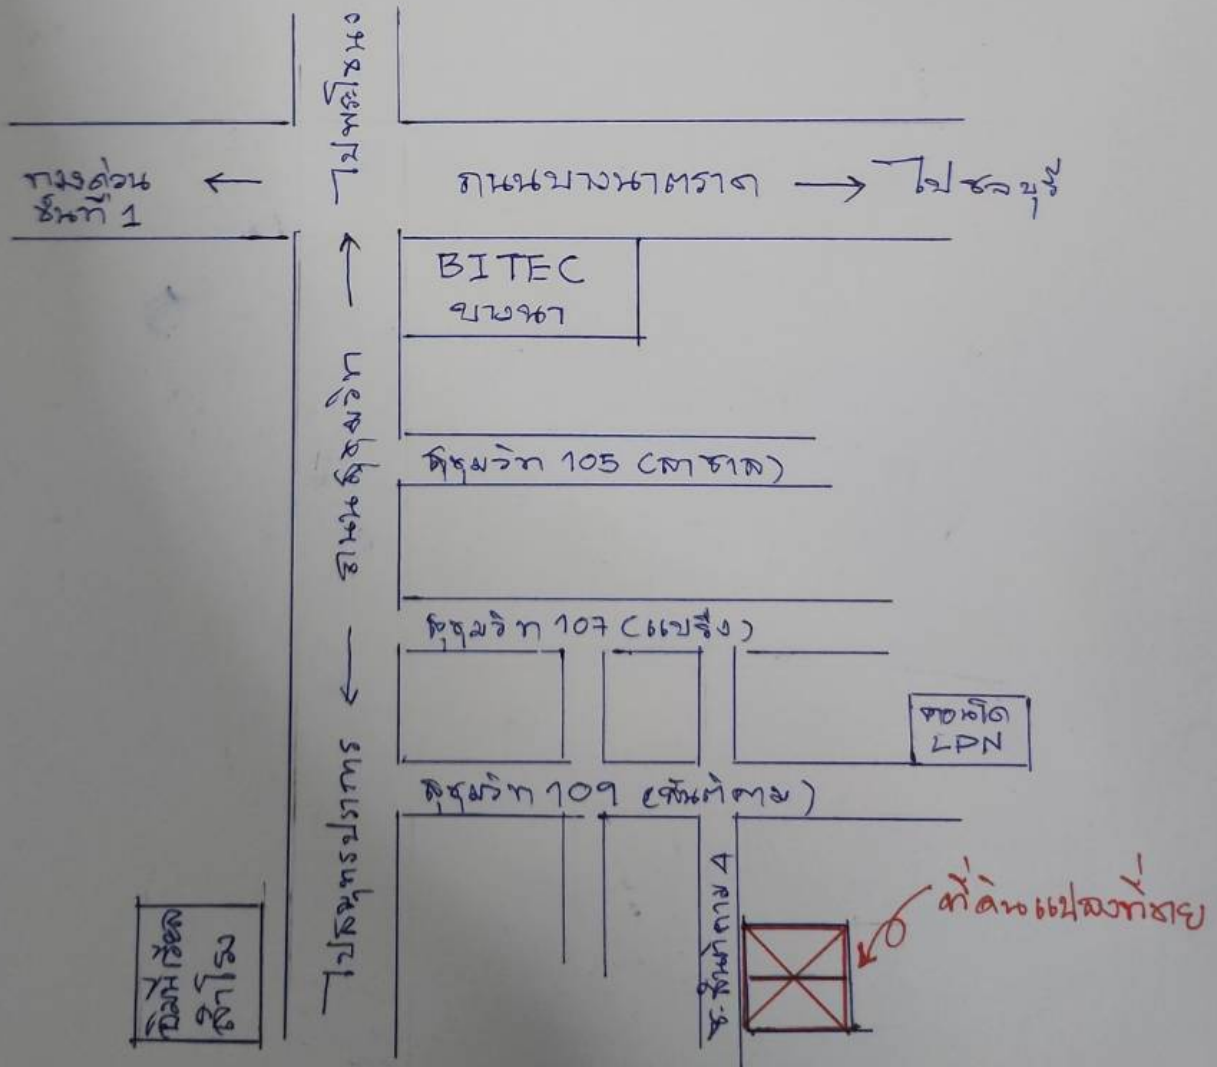 ไปพระโขนง
ทางด่วน
ขั้นที่ 1
ถนนบางนาตราด
ไปชลบุรี
BITEC
บางนา
ถนนสุขุมวิท
สุขุมวิท 105 (ลาซาล)
สุขุมวิท 107 (แบริ่ง)
คอนโด
LPN
สุขุมวิท 109 (สันติคาม)
ไปสมุทรปราการ
ซ. สันติคาม 4
ที่ดินแปลงที่ขาย
อิมพีเรียล
สำโรง